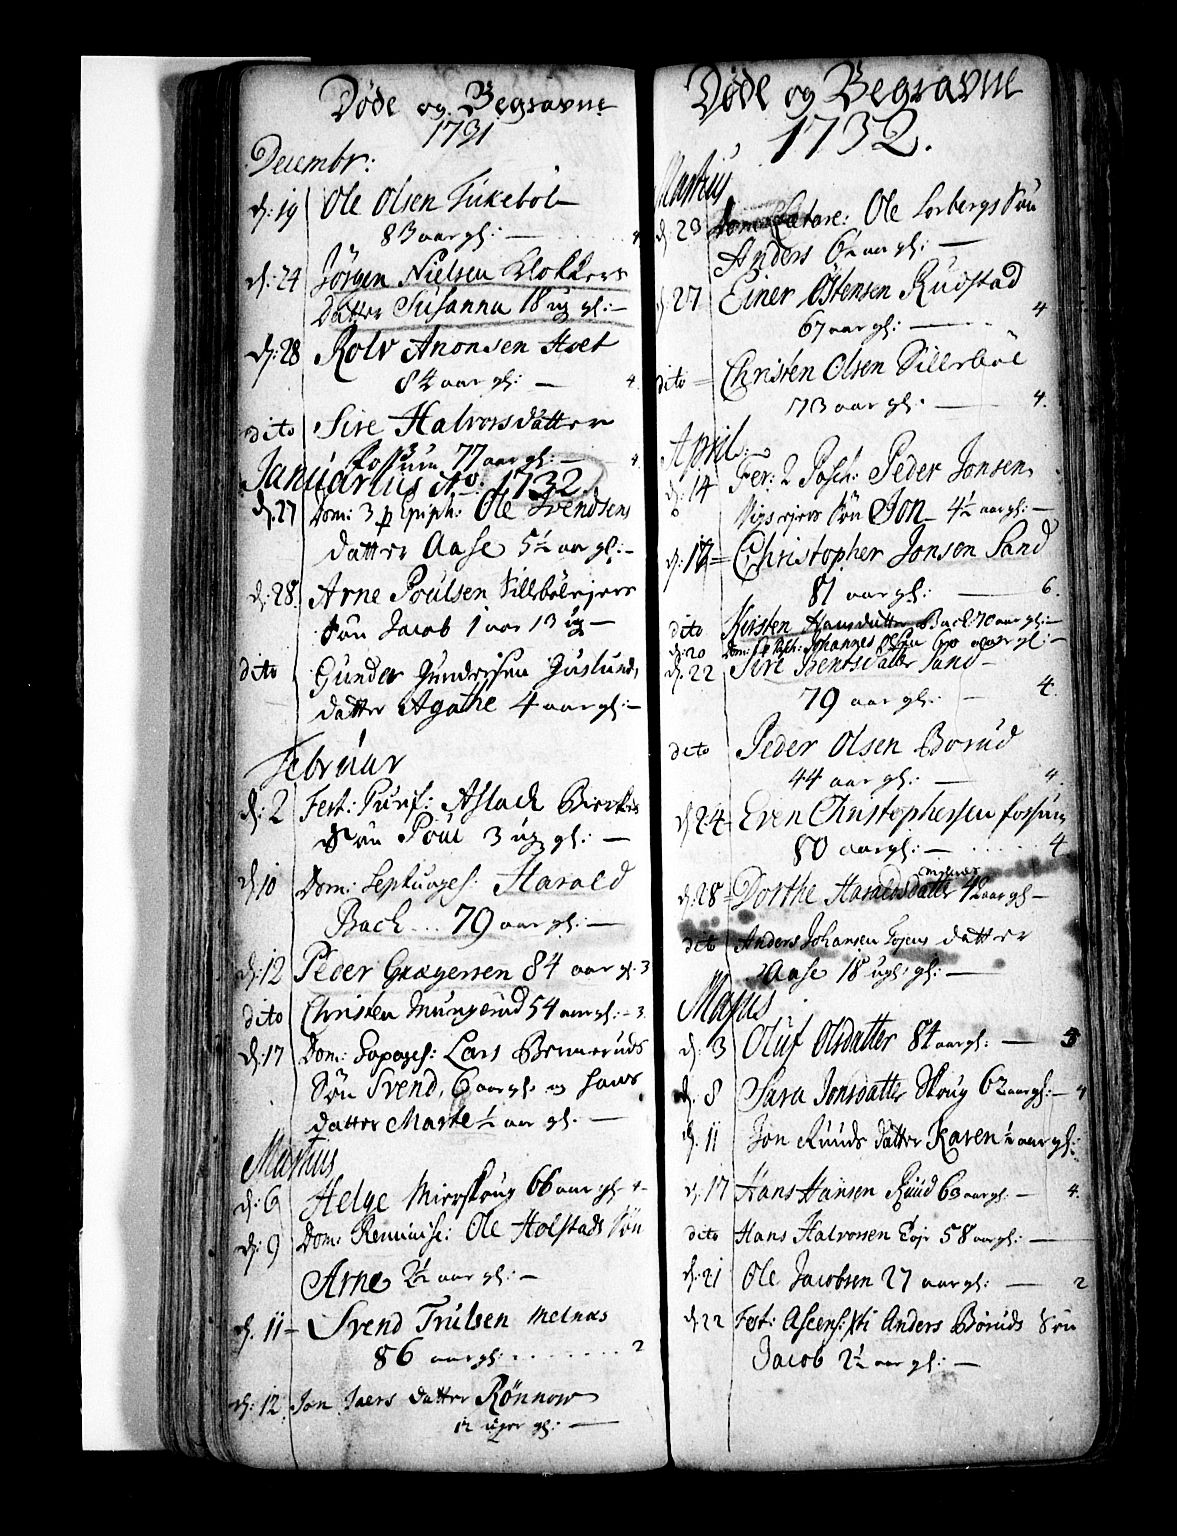 Døde og Begravne
1731
Decembr:
d: 19 Ole Olsen Fukebøl
83 aar gl: —
d: 24 Jörgen Nielsen Klokkers
Datter Susanna 18 ug gl: —
d: 28 Rolv Anonsen Holt
84 aar gl: — 4.
dito Sire Halvorsdatter
Fossum 77 aar gl: — 4.
Januarius Ao. 1732.
d. 27 Dom: 3 p Epiph: Ole Svendsens
datter Aase 5½ aar gl: —
d: 28. Arne Poulsen Sillebølejers
Søn Jacob 1 aar 13 ug —
dito Gunder Gundersen
datter Agathe 4 aar gl: —
Februar
d: 2 Fest: Purif: Aslack Bierkes
Søn Poul 3 ug gl: —
d: 10 Dom: Septuages: Harald
Bach ... 79 aar gl: —
d: 12 Peder Gregersen 84 aar gl: 3
dito Christen Mungerud 54 aar gl: - 3.
d: 17 Dom: Sexages: Lars Brenneruds
Søn Svend, 6 aar gl: og hans
datter Marte ½ aar gl: —
Martius
d: 6 Helge Mierskoug 66 aar gl - 4 -
d: 9 Dom: Reminisc: Ole Holstads Søn
Arne 2½ aar gl: —
d. 11 - Svend Trulsen Melnæs
86 aar gl: . . . . . . . 2
d: 12. Jon Jaers datter Rönnow
12 uger gl: —
Døde og Begravne
1732.
Martius
d 23 Dom: Lætare: Ole Sorbergs Søn
Anders 6½ aar gl: —
d: 27 Einer Østensen Rudstad
67 aar gl: — 4
dito = Christen Olsen Sillebøl
73 aar gl: — 4.
April
d: 14 Fer: 2 Pasch: Peder Jonsen
Søn Jon 4½ aar gl: —
d: 17 = Christopher Jonsen Sand
81 aar gl: — 6.
dito Kirsten Hansdatter Bach 70 aar gl: —
d: 20 Dom: Pasch: Johannes Olsen aar gl: —
d: 22 Sire Bentsdatter Sand —
79 aar gl: — 4.
dito Peder Olsen Borud
44 aar gl: — 4.
d: 24 - Even Christophersen Fossum
80 aar gl: — . . . . . 4
d: 28 = Dorthe Haraldsdatter 42 aar gl —
dito Anders Johansen Tojens datter
Aase 18 ug: gl: —
Majus
d: 3 Oluf Olsdatter 84 aar gl: —
d: 8 Sara Jonsdatter Skoug 62 aar gl: — 4
d: 11 Jon Ruuds datter Karen ½ aar gl:
d: 17 Hans Hansen Ruud 63 aar gl: — 4.
dito Hans Halvorsen Eoje 58 aar gl: —
d: 21 Ole Jacobsen 27 aar gl: — 2
d: 22 Fest: Ascens: Xti Anders Boruds Søn
Jacob 2½ aar gl: —